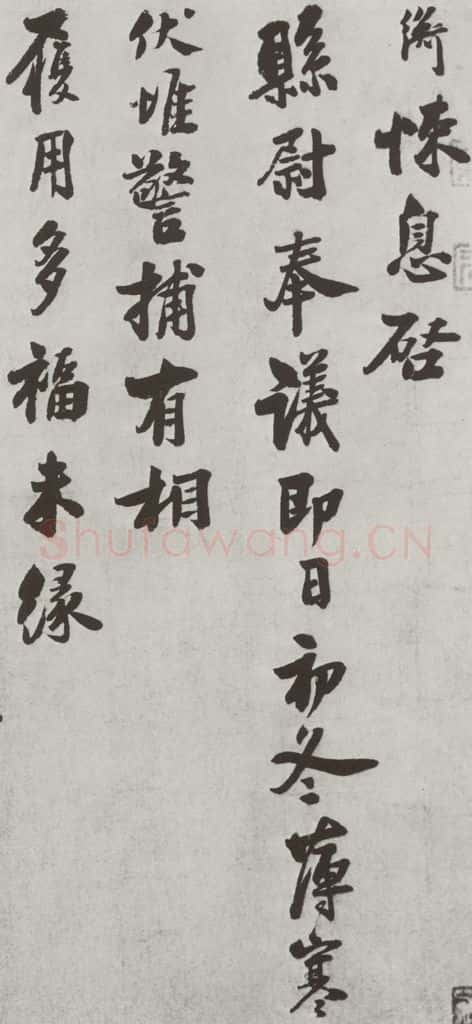 衛悚息啓
縣尉奉議即日初冬薄寒
伏惟警捕有相
履用多福未緣
Shufawang.CN